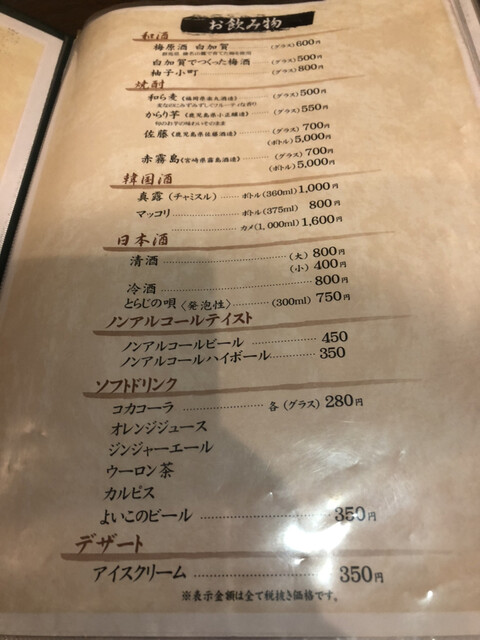 お飲み物
和酒
梅原酒 白加賀 (グラス) 600円
白加賀でつくった梅酒 (グラス) 500円
柚子小町 (グラス) 800円
焼酎
和ら麦 (福岡県 (グラス) 500円
からり芋 (鹿児島県小正醸造) (グラス) 550円
旬のお芋の味わいそのまま
佐藤 (鹿児島県佐藤酒造) (グラス) 700円
(ボトル) 5,000円
赤霧島 (宮崎県霧島酒造) (グラス) 700円
(ボトル) 5,000円
韓国酒
真露 (チャミスル) ボトル (360ml) 1,000円
マッコリ ボトル (375ml) 800円
カメ (1,000ml) 1,600円
日本酒
清酒 (大) 800円
(小) 400円
冷酒 800円
とらじの唄〈発泡性〉 (300ml) 750円
ノンアルコールテイスト
ノンアルコールビール 450
ノンアルコールハイボール 350
ソフトドリンク
コカコーラ 各 (グラス) 280円
オレンジジュース
ジンジャーエール
ウーロン茶
カルピス
よいこのビール 350円
デザート
アイスクリーム 350円
※表示金額は全て税抜き価格です。